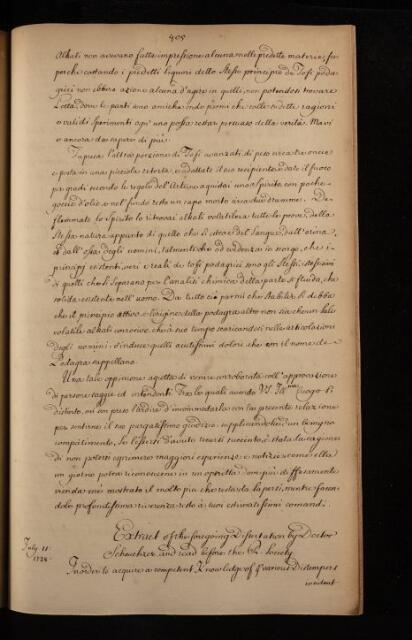 405
Alkali non avevano fatta impressione alcuna nelle predette materie, fu
perche costando i predetti liquori dello stesso principio de Tofi poda
grici non ebbero azione alcuna d'agire in quelli, non potendosi trovare
Lotta, dove le parti sono amiche
o validi sperimenti ogn' uno possa restar persuaso della verità. Ma vi
è ancora da sapere di più.
Fu presa l'altra porzione di Tofi avanzati di peso circa tre oncie
e posta in una piccola retorta, e adattato il suo recipiente, dato il fuoco
per gradi secondo le regole dell'Arte, ne acquistai uno Spirito con poche
goccie d'olio, e nel fondo restò un capo morto
flemmato lo Spirito lo ritrovai alkali volatile a tutte le prove, della
stessa natura appunto di quello che si estrae del Sangue, dall'orina,
e dall'ossa degli uomini, talmente che ad evidenza io scorgo, che i
principj esistenti, veri e reali de tofi podagrici sono gli stessi, stessissimi
di quelli che si separano per l'analisi chimica della parte sì fluida, che
solida esistente nell'uomo. Da tutto ciò parmi che stabilir si debba
che il principio attivo e l'origine della podagra altro non sia che un Sale
volatile alkali che a suo tempo scaricandosi nelle articolazioni
degli uomini, v'induce quelli acutissimi dolori che con il nome di
Podagra s'appellano.
Una tale oppinione aspetta di venire corroborata coll'approvazione
di persone sagge ed intendenti. Tra le quali avendo VS. Ill.ma luogo sì
distinto, mi son preso l'ardire d'incomodarla con la presente relazione
per sentirne il suo purgatissimo giudizio, supplicandola ad un benigno
compatimento, se l'essersi dovuto tenersi succinto è stata la cagione
di non potersi esprimere maggiori esperienze, e notizie, come ella
un giorno potrà riconoscere in un operetta dove più diffusamente
verrà mostrato il molto più che resta da sapersi, mentre facen
dole profondissima riverenza resto a suoi stimatissimi comandi.
Extract of the foregoing Dissertation by Doctor
July 11
1728
Scheuchzer and read before the R. Society
In order to acquire a competent Knowledge of ye various Distempers
incident